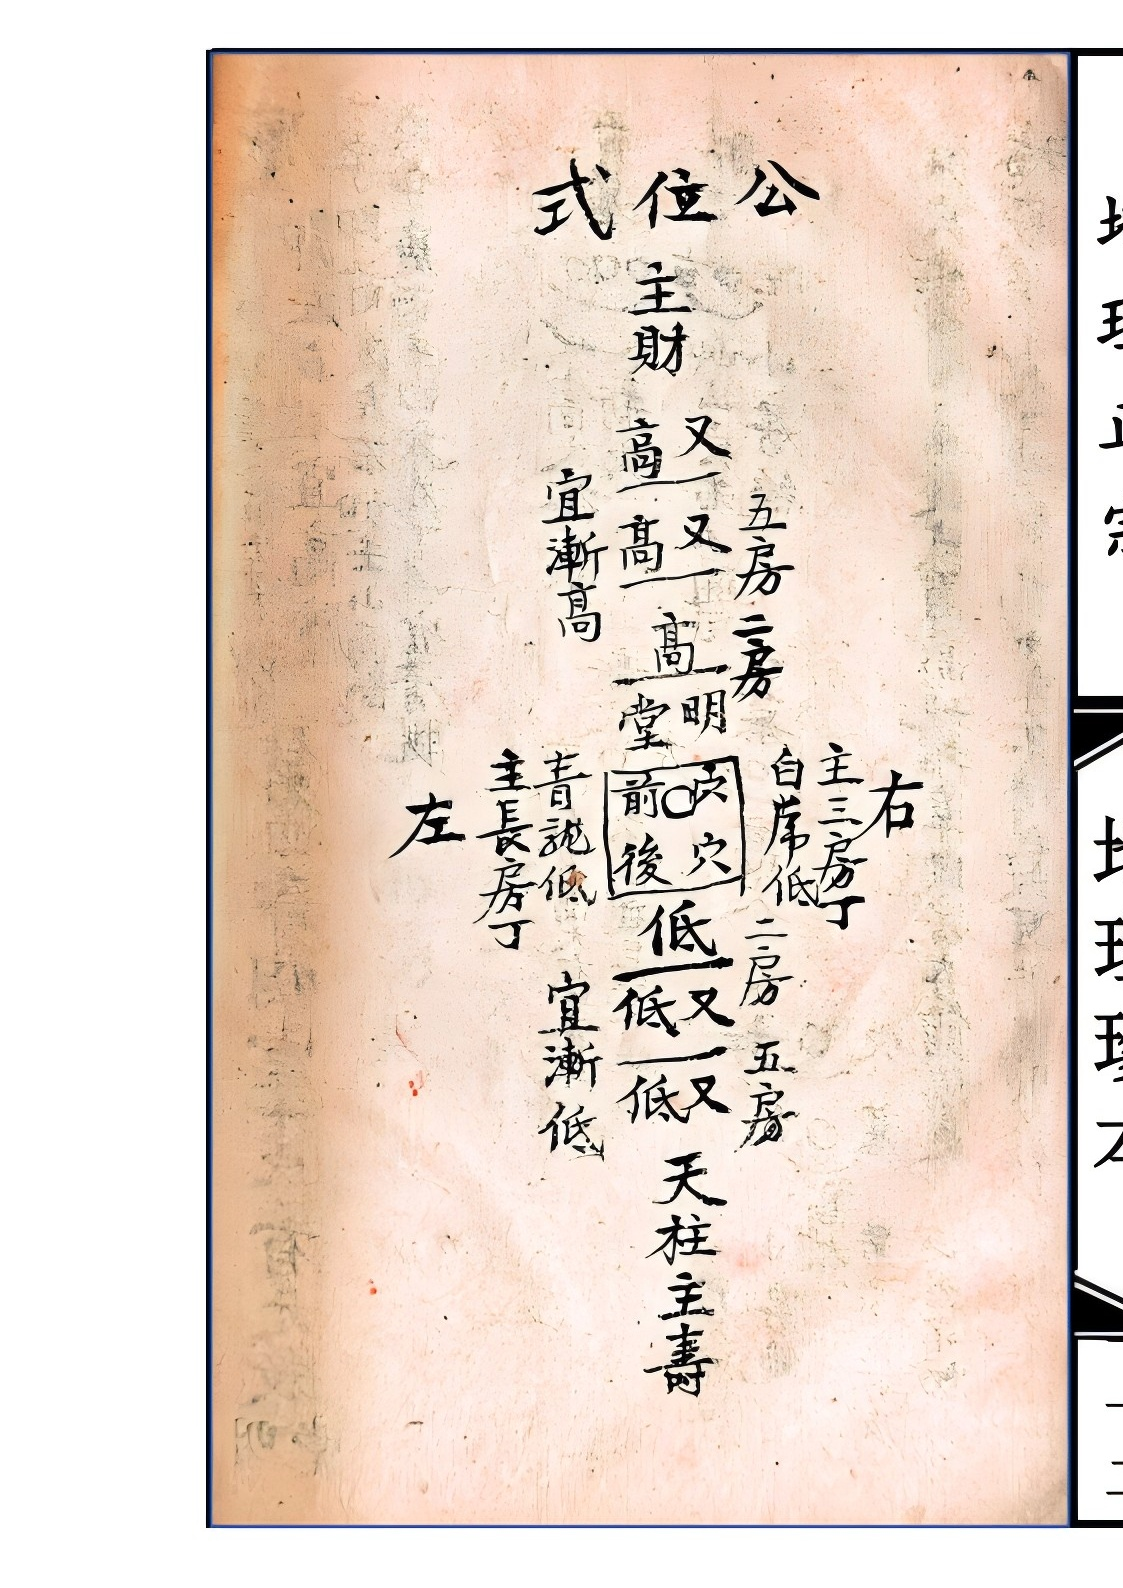 公位式
主財
又高
又高
高
明堂
五房 二房
宜漸高
右
主三房丁
白虎低
穴前
穴後
青龍低
主長房丁
左
低
又低
又低
二房 五房
宜漸低
天柱主壽